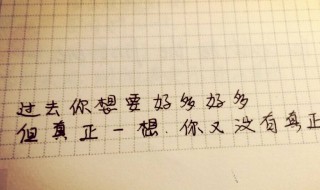 过去你想要好多好多
但真正一想.你又没有真正